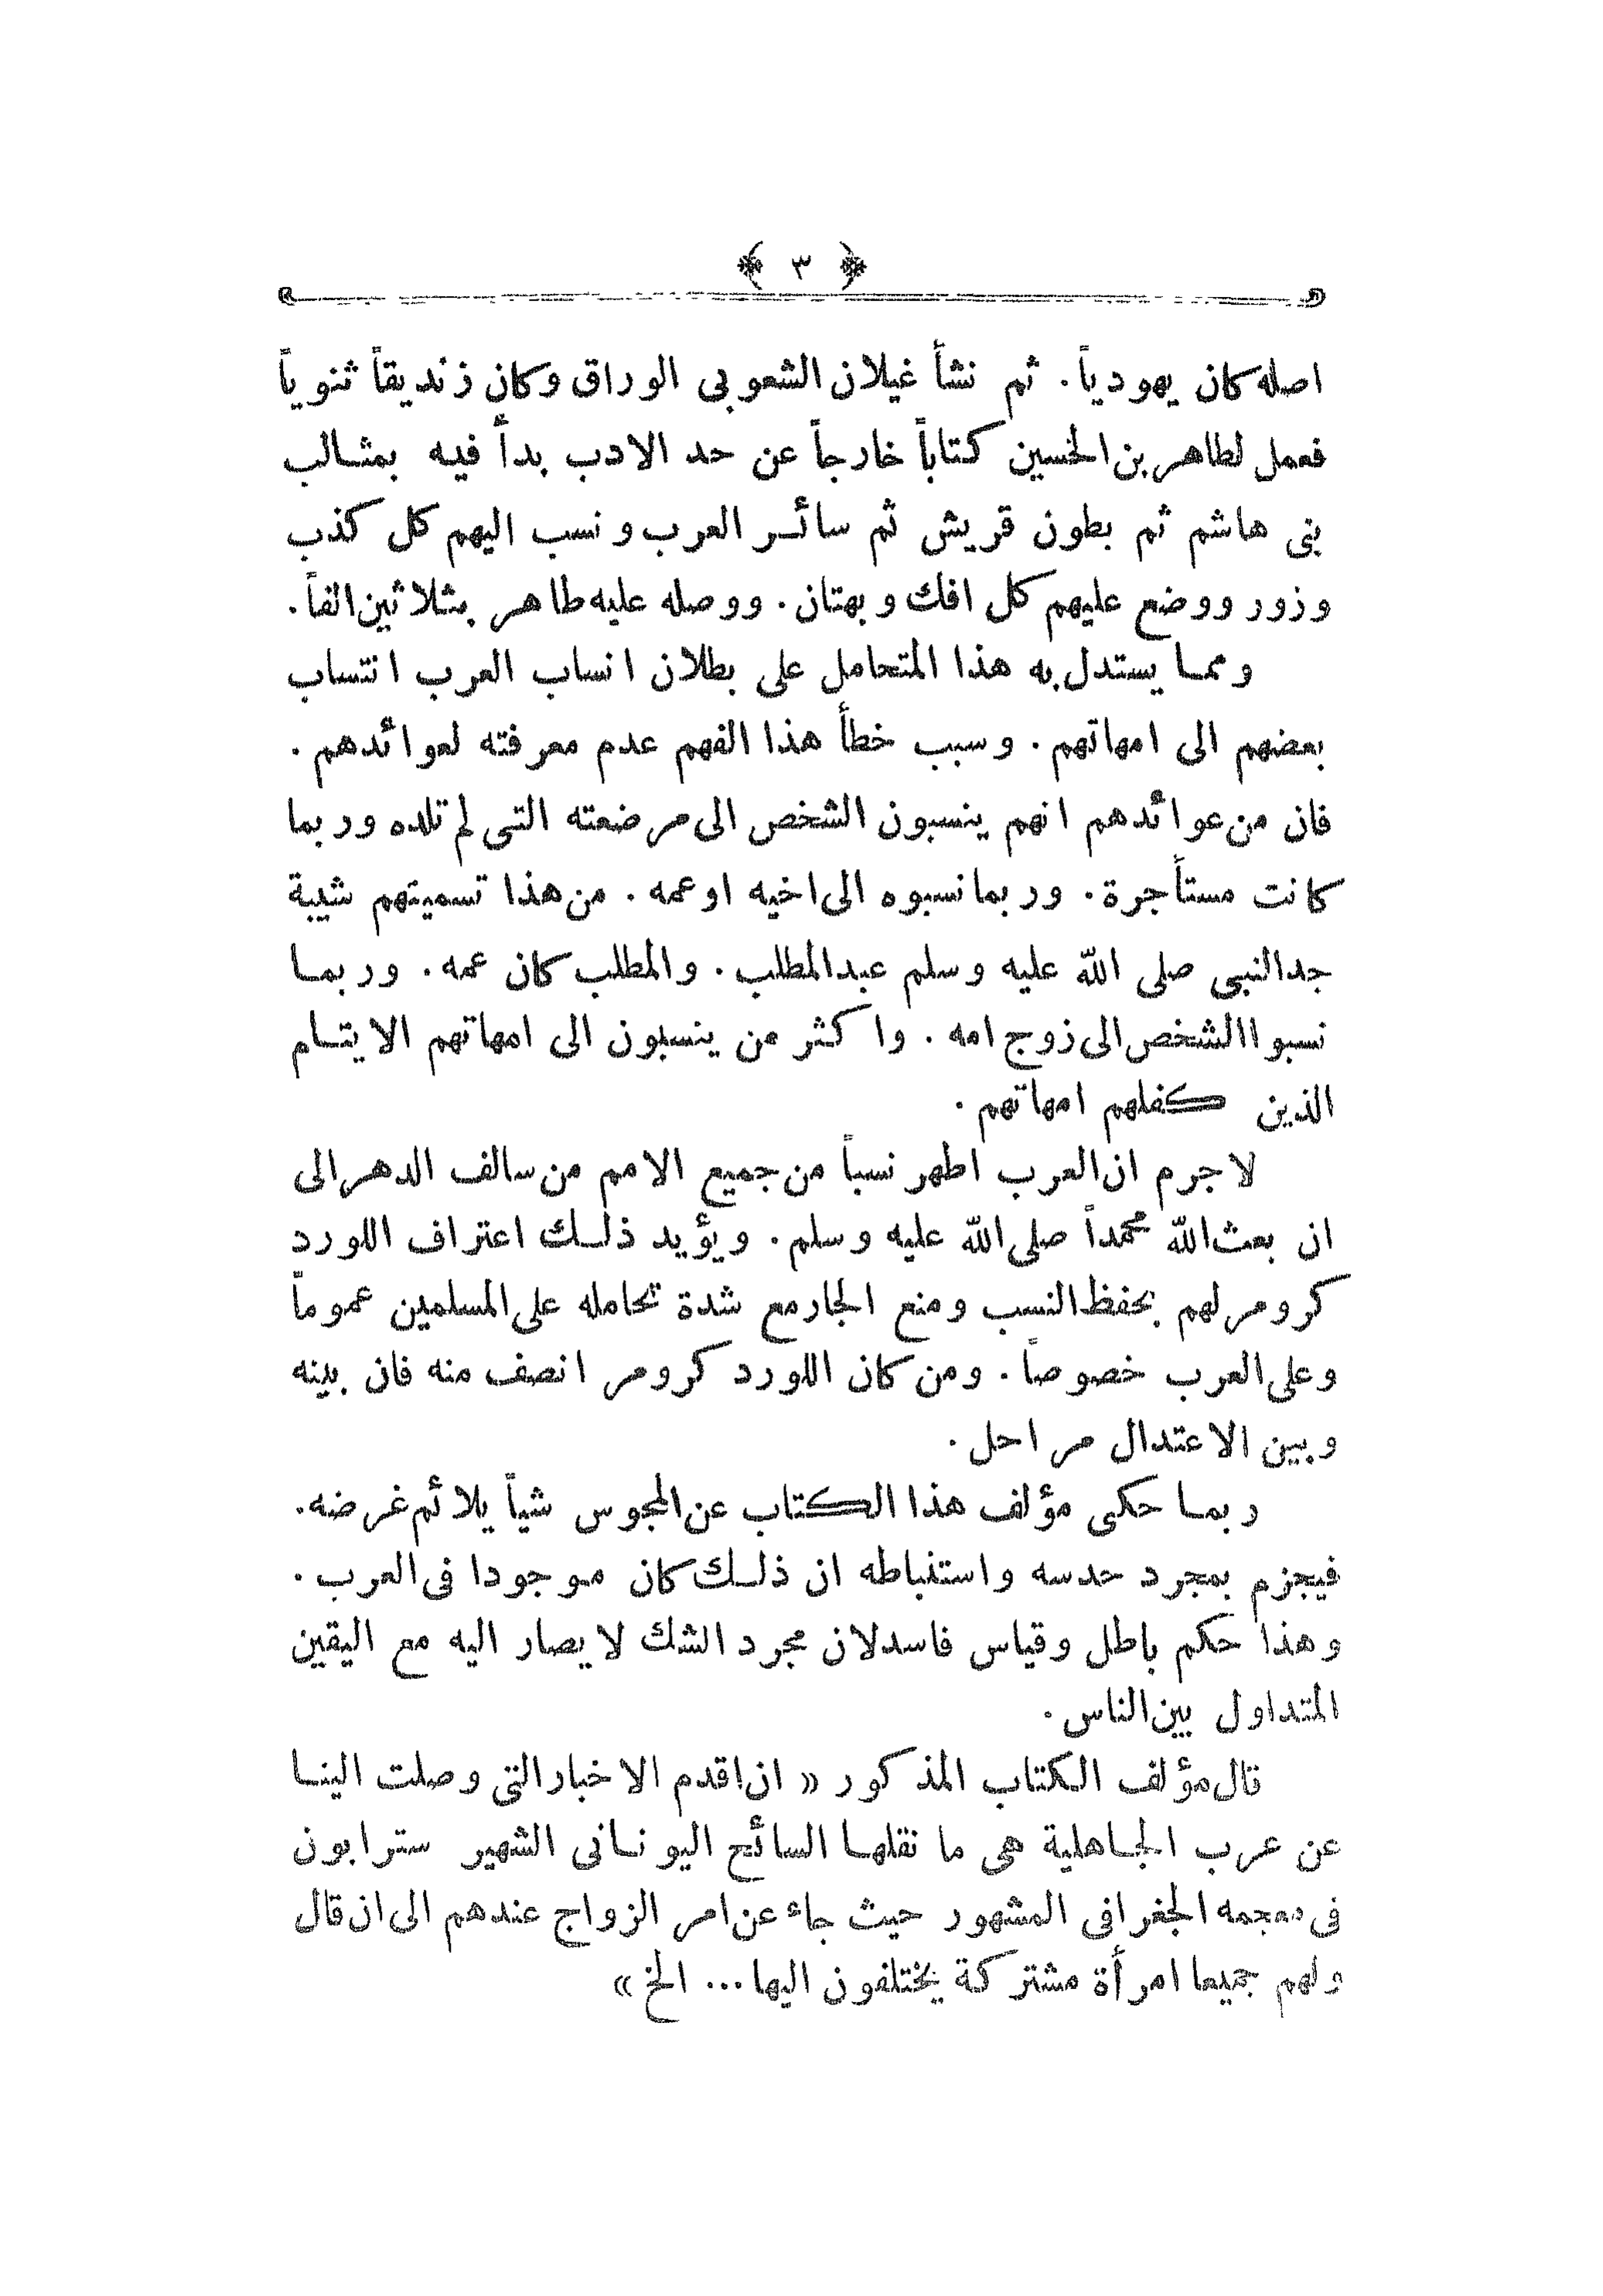 ﴿ ٣ ﴾
اصله كان يهودياً. ثم نشأ غيلان الشعوبى الوراق وكان زنديقاً ثنوياً
فعمل لطاهر بن الحسين كتاباً خارجاً عن حد الادب بدأ فيه بمثالب
بنى هاشم ثم بطون قريش ثم سائر العرب ونسب اليهم كل كذب
وزور ووضع عليهم كل افك وبهتان. ووصله عليه طاهر بثلاثين الفاً.
ومما يستدل به هذا المتحامل على بطلان انساب العرب انتساب
بعضهم الى امهاتهم. وسبب خطأ هذا الفهم عدم معرفته لعوائدهم.
فان من عوائدهم انهم ينسبون الشخص الى مرضعته التى لم تلده وربما
كانت مستأجرة. وربما نسبوه الى اخيه او عمه. من هذا تسميتهم شيبة
جد النبى صلى الله عليه وسلم عبد المطلب. والمطلب كان عمه. وربما
نسبوا الشخص الى زوج امه. واكثر من ينسبون الى امهاتهم الايتام
الذين كفلهم امهاتهم.
لا جرم ان العرب اطهر نسباً من جميع الامم من سالف الدهر الى
ان بعث الله محمداً صلى الله عليه وسلم. ويؤيد ذلك اعتراف اللورد
كرومر لهم بحفظ النسب ومنع الجار مع شدة تحامله على المسلمين عموماً
وعلى العرب خصوصاً. ومن كان اللورد كرومر انصف منه فان بينه
وبين الاعتدال مراحل.
ربما حكى مؤلف هذا الكتاب عن المجوس شيأ يلائم غرضه.
فيجزم بمجرد حدسه واستنباطه ان ذلك كان موجودا فى العرب.
وهذا حكم باطل وقياس فاسد لان مجرد الشك لا يصار اليه مع اليقين
المتداول بين الناس.
قال مؤلف الكتاب المذكور « ان اقدم الاخبار التى وصلت الينا
عن عرب الجاهلية هى ما نقلها السائح اليونانى الشهير سترابون
فى معجمه الجغرافى المشهور حيث جاء عن امر الزواج عندهم الى ان قال
ولهم جميعا امرأة مشتركة يختلفون اليها... الخ »